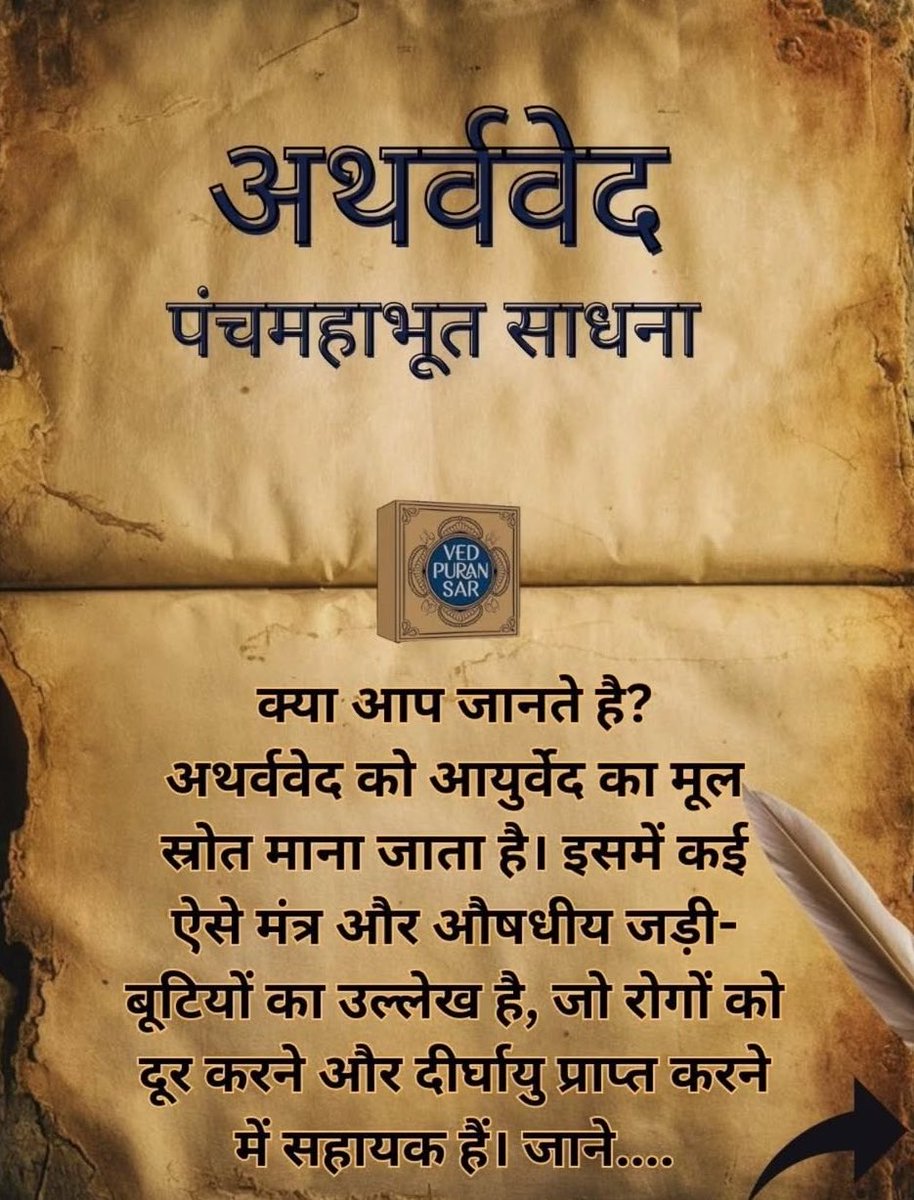 अथर्ववेद
पंचमहाभूत साधना
VED
PURAN
SAR
क्या आप जानते है?
अथर्ववेद को आयुर्वेद का मूल
स्रोत माना जाता है। इसमें कई
ऐसे मंत्र और औषधीय जड़ी-
बूटियों का उल्लेख है, जो रोगों को
दूर करने और दीर्घायु प्राप्त करने
में सहायक हैं। जाने....